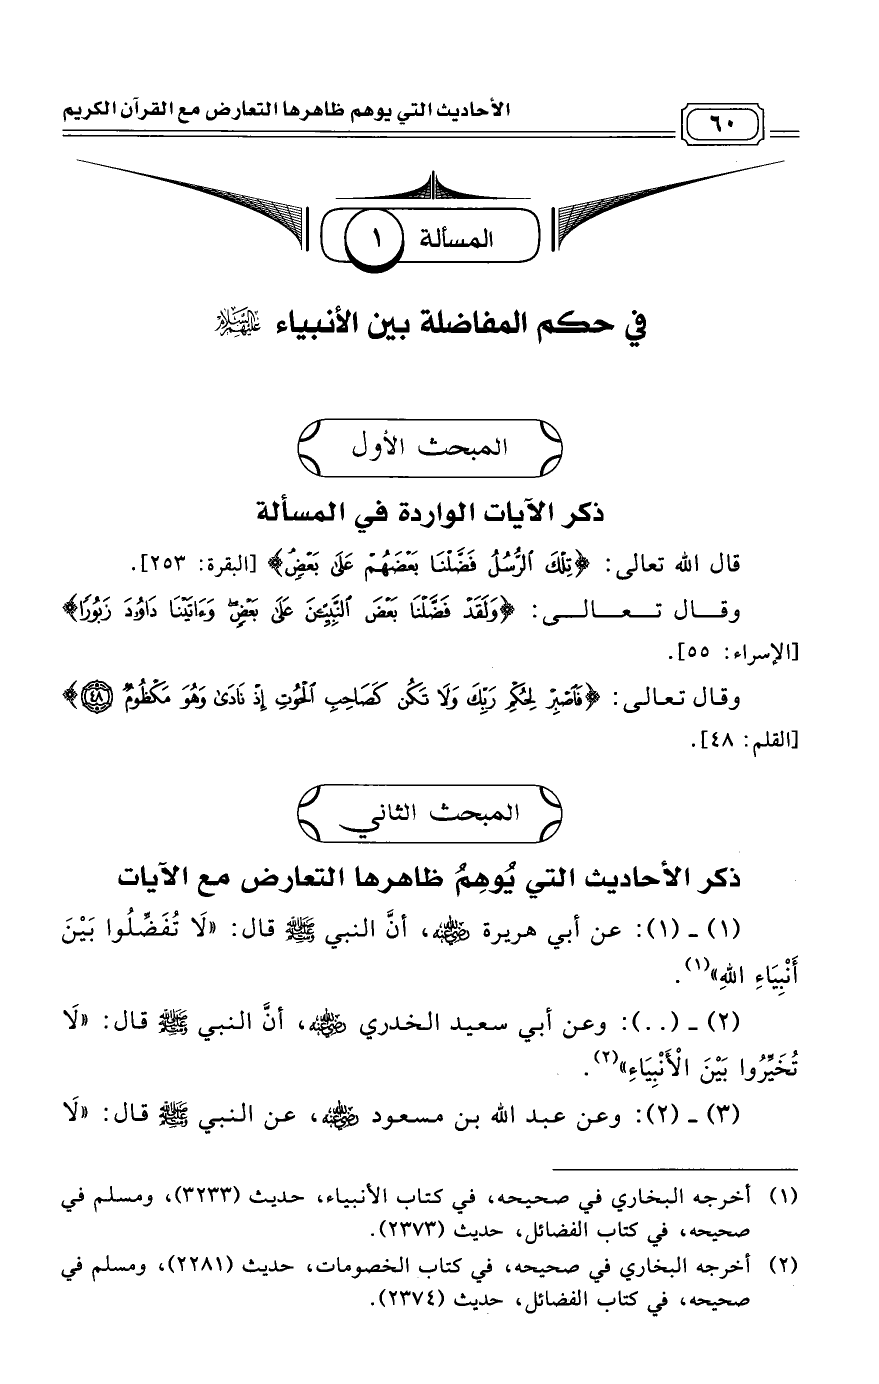 ٦٠
الأحاديث التي يوهم ظاهرها التعارض مع القرآن الكريم
المسألة ١
في حكم المفاضلة بين الأنبياء عليهم السلام
المبحث الأول
ذكر الآيات الواردة في المسألة
قال الله تعالى: ﴿تِلْكَ ٱلرُّسُلُ فَضَّلْنَا بَعْضَهُمْ عَلَىٰ بَعْضٍ﴾ [البقرة: ٢٥٣].
وقـــال تـــعـــالـــى: ﴿وَلَقَدْ فَضَّلْنَا بَعْضَ ٱلنَّبِيِّـۧنَ عَلَىٰ بَعْضٍۖ وَءَاتَيْنَا دَاوُۥدَ زَبُورًا﴾
[الإسراء: ٥٥].
وقال تعالى: ﴿فَٱصْبِرْ لِحُكْمِ رَبِّكَ وَلَا تَكُن كَصَاحِبِ ٱلْحُوتِ إِذْ نَادَىٰ وَهُوَ مَكْظُومٌ ٤٨﴾
[القلم: ٤٨].
المبحث الثاني
ذكر الأحاديث التي يُوهِمُ ظاهرها التعارض مع الآيات
(١) ـ (١): عن أبي هريرة رضي الله عنه، أنَّ النبي ﷺ قال: «لَا تُفَضِّلُوا بَيْنَ
أَنْبِيَاءِ اللهِ»(١).
(٢) ـ (..): وعن أبي سعيد الخدري رضي الله عنه، أنَّ النبي ﷺ قال: «لَا
تُخَيِّرُوا بَيْنَ الْأَنْبِيَاءِ»(٢).
(٣) ـ (٢): وعن عبد الله بن مسعود رضي الله عنه، عن النبي ﷺ قال: «لَا
(١) أخرجه البخاري في صحيحه، في كتاب الأنبياء، حديث (٣٢٣٣)، ومسلم في
صحيحه، في كتاب الفضائل، حديث (٢٣٧٣).
(٢) أخرجه البخاري في صحيحه، في كتاب الخصومات، حديث (٢٢٨١)، ومسلم في
صحيحه، في كتاب الفضائل، حديث (٢٣٧٤).